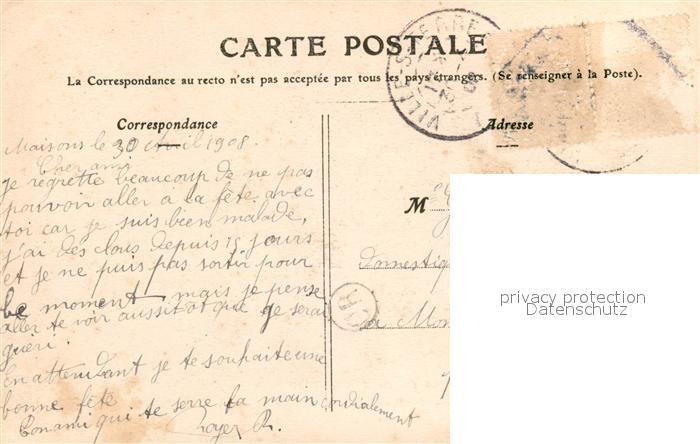 CARTE POSTALE
La Correspondance au recto n'est pas acceptée par tous les pays étrangers. (Se renseigner à la Poste).
Correspondance
Maisons le 30 avril 1908.
Cher ami
Je regrette beaucoup de ne pas
pouvoir aller a la fête avec
toi car je suis bien malade,
j'ai des clous depuis 15 jours
et je ne puis pas sortir pour
le moment, mais je pense
aller te voir aussitot que je serai
guéri.
En attendant je te souhaite une
bonne fête
Ton ami qui te serre la main cordialement
Royer R.
Adresse
M
domestiq
privacy protection
Datenschutz